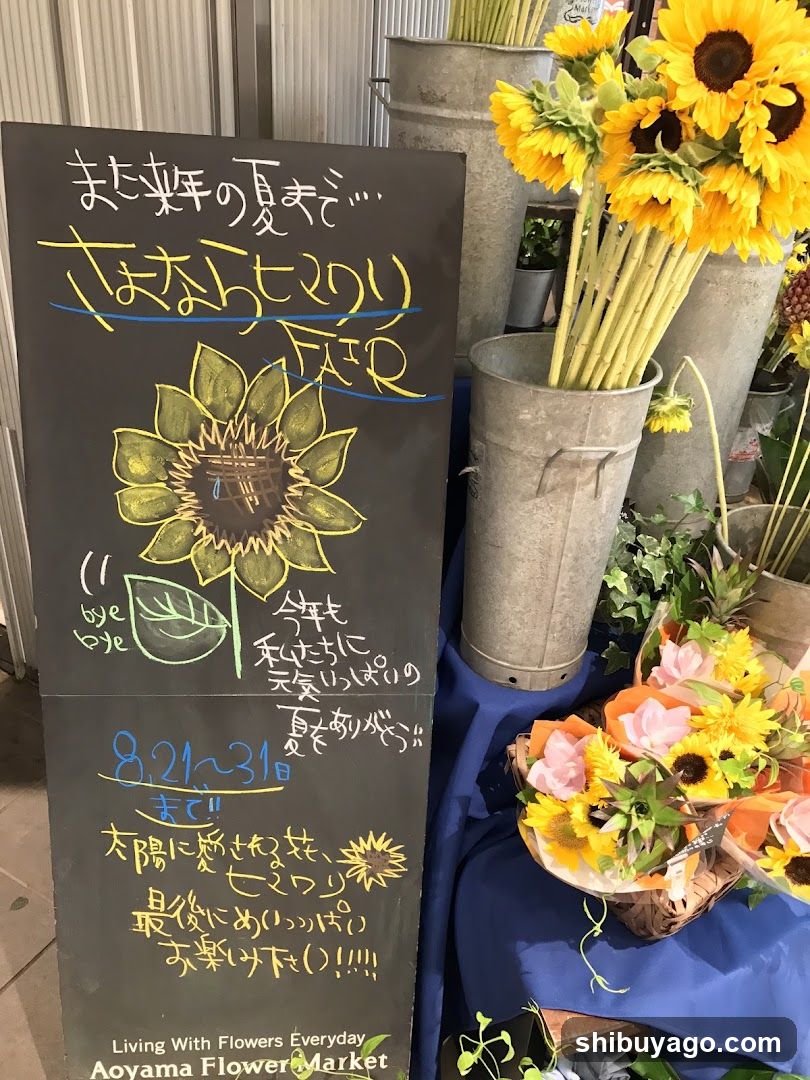 また来年の夏まで…
さよならヒマワリ
FAIR
bye
bye
今年も
私たちに
元気いっぱいの
夏をありがとう!!
8,21〜31日
まで!!
太陽に愛される花、
ヒマワリ
最後にめいっぱい
お楽しみ下さい!!!!
Living With Flowers Everyday
Aoyama Flower Market
shibuyago.com